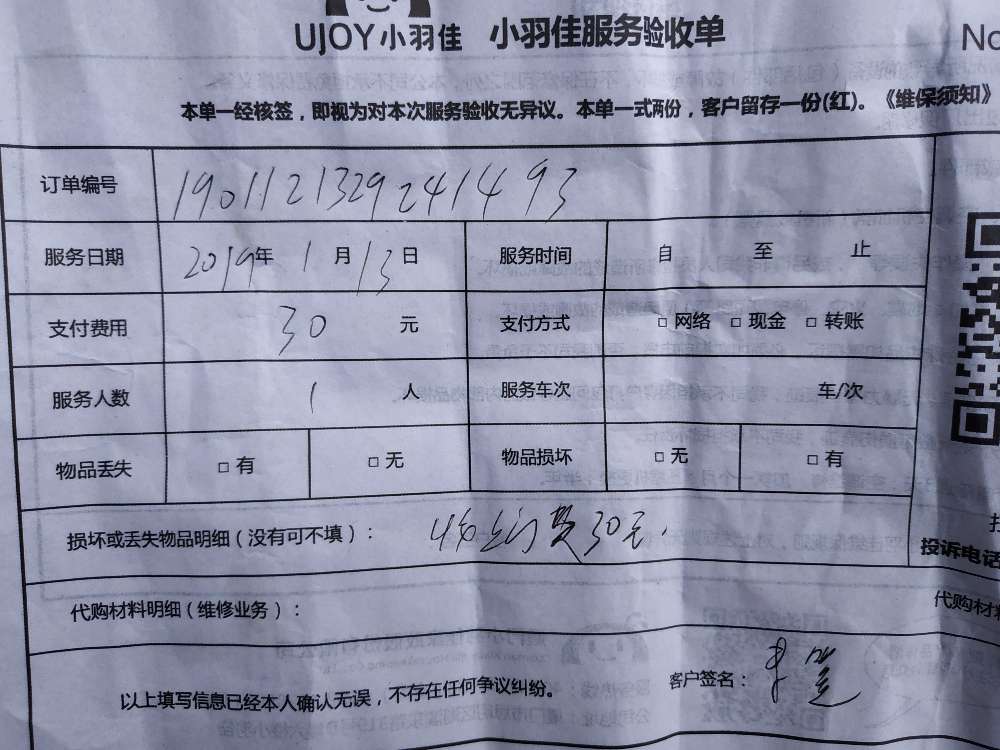 UJOY小羽佳 小羽佳服务验收单 No
本单一经核签，即视为对本次服务验收无异议。本单一式两份，客户留存一份(红)。《维保须知》
订单编号 1901121329241493
服务日期 2019年 1月 13日 服务时间 自 至 止
支付费用 30 元 支付方式 □ 网络 □ 现金 □ 转账
服务人数 1 人 服务车次 车/次
物品丢失 □ 有 □ 无 物品损坏 □ 无 □ 有
损坏或丢失物品明细（没有可不填）： 上门费30元.
投诉电话
代购材料明细（维修业务）： 代购材
以上填写信息已经本人确认无误，不存在任何争议纠纷。 客户签名：